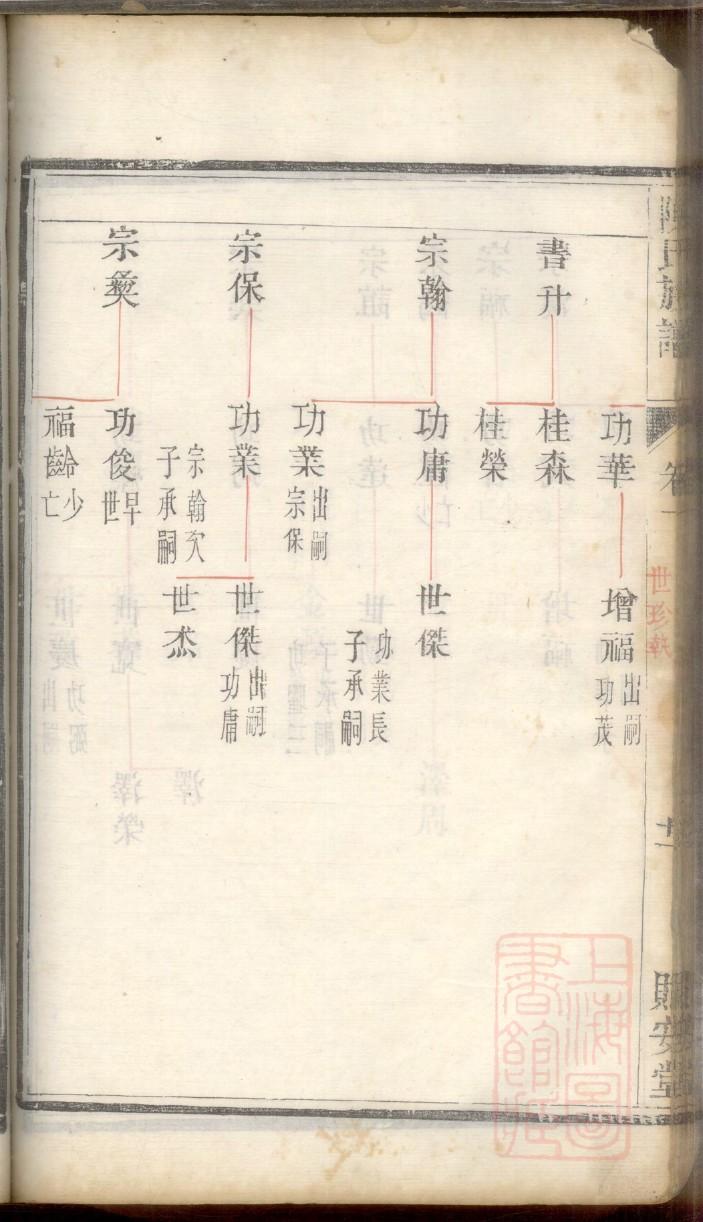 氏族譜
卷一
世珍執
十一
賜安堂
功華
增福
出嗣
功茂
書升
桂森
桂榮
宗翰
功庸
世傑
功業長
子承嗣
功業
出嗣
宗保
宗保
功業
宗翰次
子承嗣
世傑
出嗣
功庸
世杰
宗爕
功俊
早
世
福齡
少
亡
上海圖
書館藏